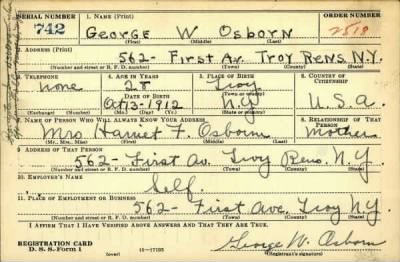 SERIAL NUMBER
1. NAME (Print)
ORDER NUMBER
742
George W Osborn
2519
(First) (Middle) (Last)
2. ADDRESS (Print)
562- First Av. Troy Rens. N.Y.
(Number and street or R. F. D. number) (Town) (County) (State)
3. TELEPHONE
4. AGE IN YEARS
5. PLACE OF BIRTH
6. COUNTRY OF CITIZENSHIP
none
Troy
DATE OF BIRTH
Oct-13-1912
N.Y
U.S.A.
(Exchange) (Number)
(Mo.) (Day) (Yr.)
(State or country)
7. NAME OF PERSON WHO WILL ALWAYS KNOW YOUR ADDRESS
8. RELATIONSHIP OF THAT PERSON
Mrs Harriet F. Osborn
mother
(Mr., Mrs., Miss) (First) (Middle) (Last)
9. ADDRESS OF THAT PERSON
562- First Av. Troy Rens. N.Y.
(Number and street or R. F. D. number) (Town) (County) (State)
10. EMPLOYER'S NAME
Self.
11. PLACE OF EMPLOYMENT OR BUSINESS
562- First Ave, Troy N.Y.
(Number and street or R. F. D. number) (Town) (County) (State)
I AFFIRM THAT I HAVE VERIFIED ABOVE ANSWERS AND THAT THEY ARE TRUE.
REGISTRATION CARD
D. S. S. Form 1
(over)
16-17105
George W. Osborn
(Registrant's signature)